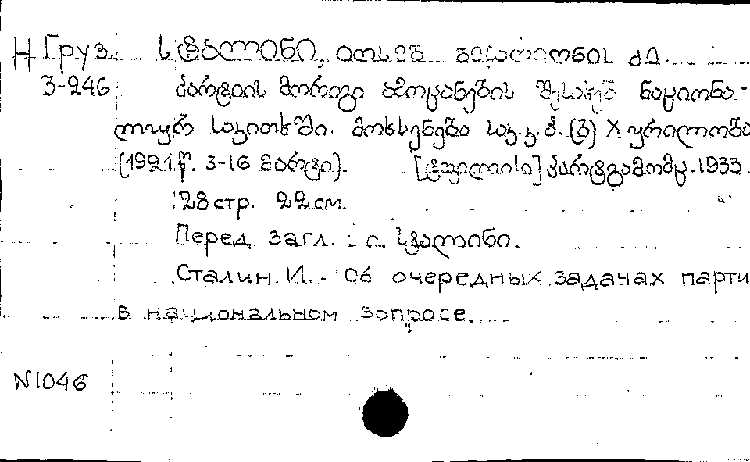 Н Груз. სტალინი, იოსებ ბესარიონის ძე
3-246 პარტიის მორიგი ამოცანების შესახებ ნაციონა-
ლურ საკითხში. მოხსენება საკ.კ.პ.(ბ) X ყრილობა
(1921 წ. 3-16 მარტი). [ტფილისი] პარტგამომც. 1933.
28 стр. 22 см.
Перед загл.: ი. სტალინი.
Сталин И. - Об очередных задачах парти
в национальном вопросе.
N 1046